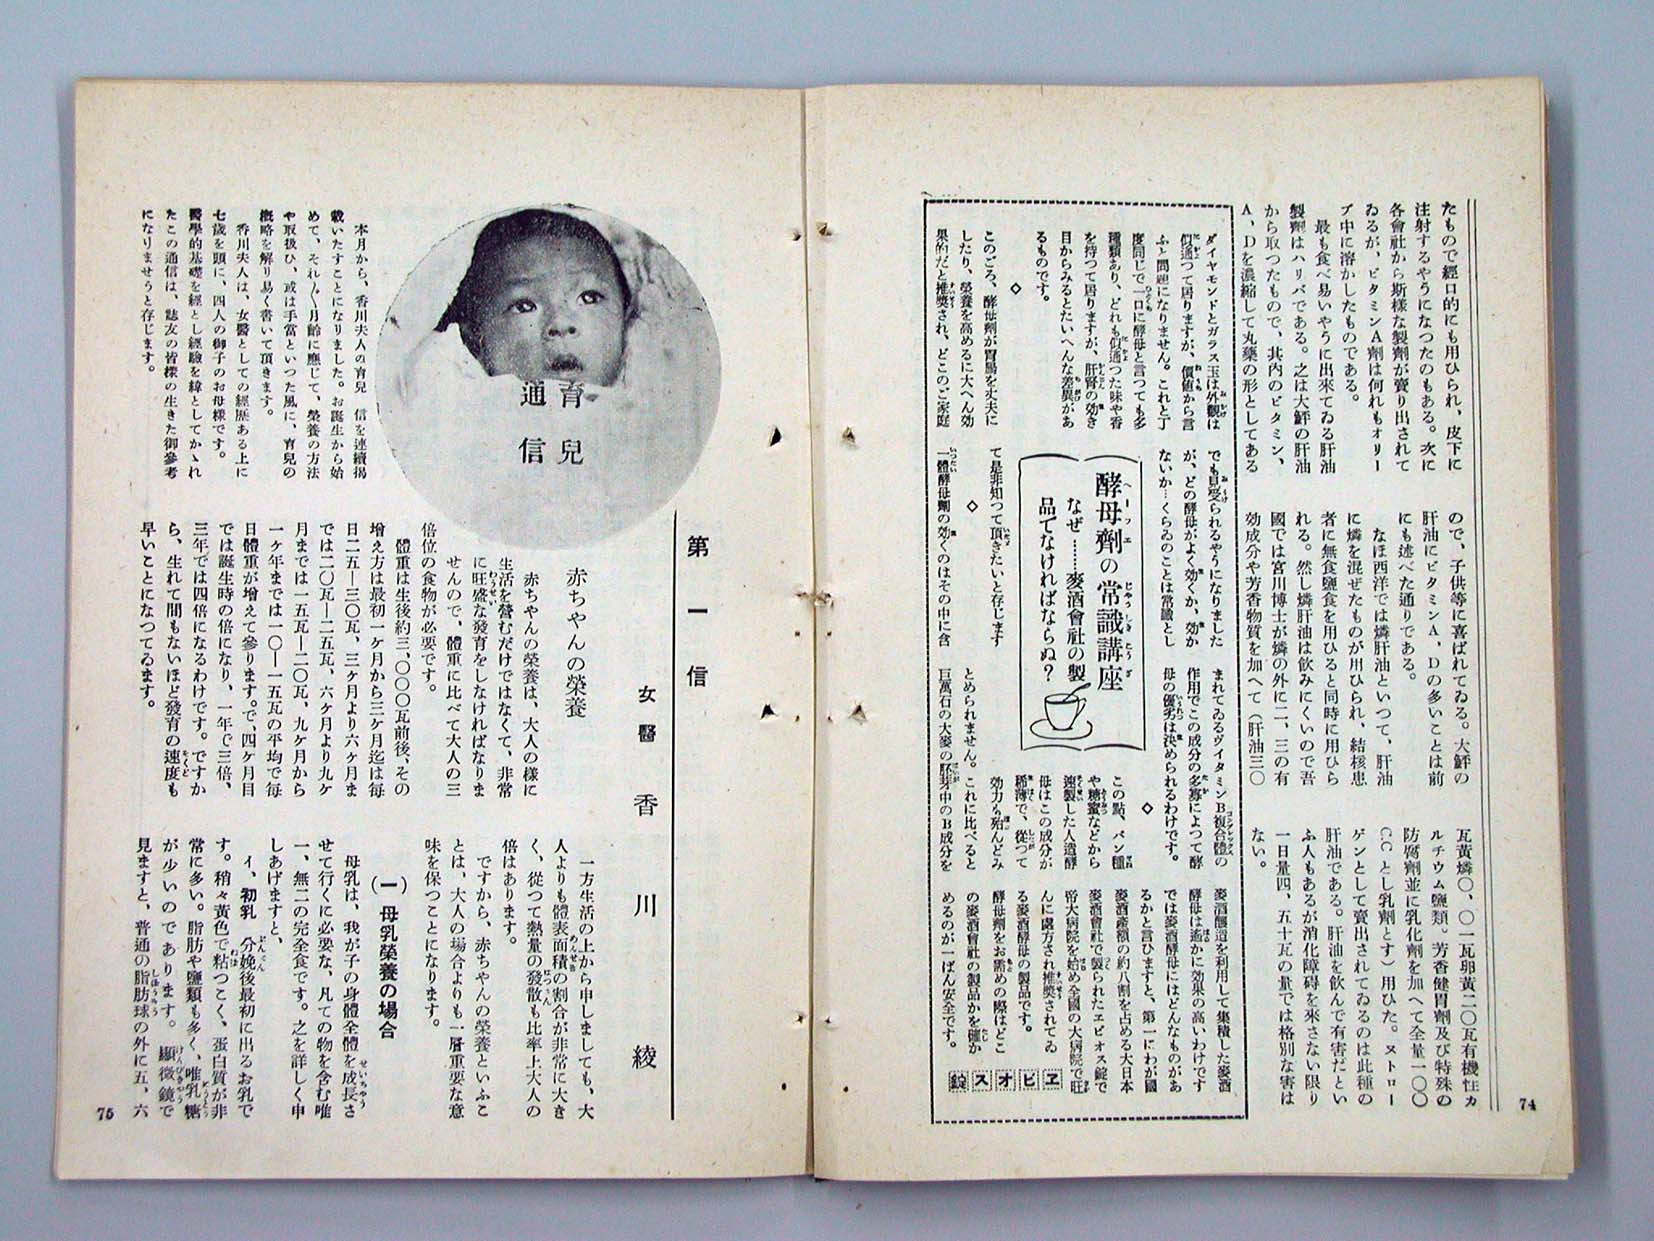 たもので經口的にも用ひられ、皮下に
注射するやうになつたのもある。次に
各會社から斯様な製劑が賣り出されて
ゐるが、ビタミンA劑は何れもオリー
ブ中に溶かしたものである。
最も食べ易いやうに出來てゐる肝油
製劑はハリバである。之は大鮃の肝油
から取つたもので、其内のビタミン、
A、Dを濃縮して丸藥の形としてある
ので、子供等に喜ばれてゐる。大鮃の
肝油にビタミンA、Dの多いことは前
にも述べた通りである。
なほ西洋では燐肝油といつて、肝油
に燐を混ぜたものが用ひられ、結核患
者に無食鹽食を用ひると同時に用ひら
れる。然し燐肝油は飲みにくいので吾
國では宮川博士が燐の外に二、三の有
効成分や芳香物質を加へて(肝油三〇
瓦黃燐〇、〇一瓦卵黃二〇瓦有機性カ
ルチウム鹽類。芳香健胃劑及び特殊の
防腐劑並に乳化劑を加へて全量一〇〇
CCとし乳劑とす)用ひた。ヌトロー
ゲンとして賣出されてゐるのは此種の
肝油である。肝油を飲んで有害だとい
ふ人もあるが消化障碍を來さない限り
一日量四、五十瓦の量では格別な害は
ない。
酵母劑の常識講座
なぜ……麥酒會社の製
品でなければならぬ?
ダイヤモンドとガラス玉は外觀は
似通つて居りますが、價値から言
ふと問題になりません。これと丁
度同じで一口に酵母と言つても多
種類あり、どれも似通つた味や香
を持つて居りますが、肝腎の効き
目からみるとたいへんな差異があ
るものです。
◇
このごろ、酵母劑が胃腸を丈夫に
したり、榮養を高めるに大へん効
果的だと推奬され、どこのご家庭
でも見受られるやうになりました
が、どの酵母がよく効くか、効か
ないか…くらゐのことは常識とし
て是非知つて頂きたいと存じます
◇
一體酵母劑の効くのはその中に含
まれてゐるヴイタミンB複合體の
作用でこの成分の多寡によつて酵
母の優劣は決められるわけです。
◇
この點、パン種
や糖蜜などから
速製した人造酵
母はこの成分が
稀薄で、從つて
効力も殆んどみ
とめられません。これに比べると
巨萬石の大麥の胚芽中のB成分を
麥酒釀造を利用して集積した麥酒
酵母は遙かに効果の高いわけです
では麥酒酵母にはどんなものがあ
るかと言ひますと、第一にわが國
麥酒產額の約八割を占める大日本
麥酒會社で製られたエビオス錠で
帝大病院を始め全國の大病院で旺
んに處方され推奬されてゐ
る麥酒酵母の製品です。
酵母劑をお需めの際はどこ
の麥酒會社の製品かを確か
めるのが一ばん安全です。
エビオス錠
74
育兒
通信
本月から、香川夫人の育兒 信を連續揭
載いたすことになりました。お誕生から始
めて、それ〴〵月齡に應じて、榮養の方法
や取扱ひ、或は手當といつた風に、育兒の
概略を解り易く書いて頂きます。
香川夫人は、女醫としての經歷ある上に
七歲を頭に、四人の御子のお母樣です。
醫學的基礎を經とし經驗を緯としてかゝれ
たこの通信は、誌友の皆樣の生きた御參考
になりませうと存じます。
第一信
女醫 香川綾
赤ちやんの榮養
赤ちやんの榮養は、大人の樣に
生活を營むだけではなくて、非常
に旺盛な發育をしなければなりま
せんので、體重に比べて大人の三
倍位の食物が必要です。
體重は生後約三、〇〇〇瓦前後、その
增え方は最初一ヶ月から三ヶ月迄は每
日二五―三〇瓦、三ヶ月より六ヶ月ま
では二〇瓦―二五瓦、六ヶ月より九ヶ
月までは一五瓦―二〇瓦、九ヶ月から
一ヶ年までは一〇―一五瓦の平均で每
日體重が增えて參ります。で、四ヶ月目
では誕生時の倍になり、一年で三倍、
三年では四倍になるわけです。ですか
ら、生れて間もないほど發育の速度も
早いことになつてゐます。
一方生活の上から申しましても、大
人よりも體表面積の割合が非常に大き
く、從つて熱量の發散も比率上大人の
倍はあります。
ですから、赤ちやんの榮養といふこ
とは、大人の場合よりも一層重要な意
味を保つことになります。
(一) 母乳榮養の場合
母乳は、我が子の身體全體を成長さ
せて行くに必要な、凡ての物を含む唯
一、無二の完全食です。之を詳しく申
しあげますと、
イ、初乳 分娩後最初に出るお乳で
す。稍々黃色で粘つこく、蛋白質が非
常に多い。脂肪や鹽類も多く、唯乳糖
が少いのであります。顯微鏡で
見ますと、普通の脂肪球の外に五、六
75